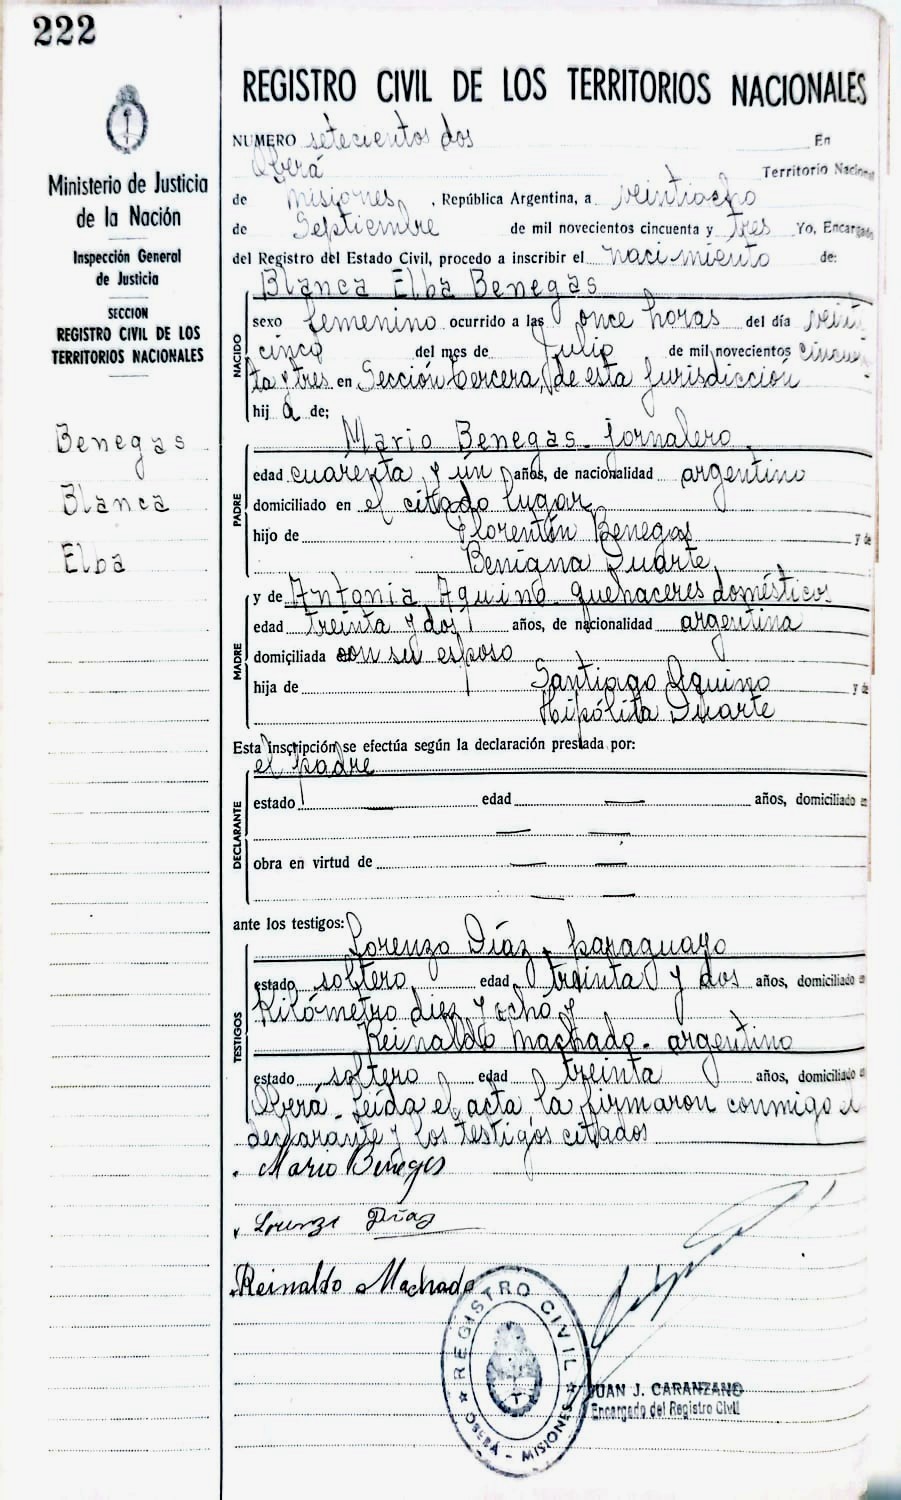 222
REGISTRO CIVIL DE LOS TERRITORIOS NACIONALES
Ministerio de Justicia
de la Nación
Inspección General
de Justicia
SECCION
REGISTRO CIVIL DE LOS
TERRITORIOS NACIONALES
Benegas
Blanca
Elba
NUMERO setecientos dos En
Oberá Territorio Nacional
de Misiones, República Argentina, a veintiocho
de Septiembre de mil novecientos cincuenta y tres Yo, Encargado
del Registro del Estado Civil, procedo a inscribir el nacimiento de:
NACIDO
Blanca Elba Benegas
sexo femenino ocurrido a las once horas del día veinti
cinco del mes de Julio de mil novecientos cincuen
ta y tres en Sección tercera, de esta jurisdicción
hij a de;
PADRE
Mario Benegas - jornalero
edad cuarenta y un años, de nacionalidad argentino
domiciliado en el citado lugar
hijo de Florentín Benegas y de
Benigna Duarte
MADRE
y de Antonia Aquino - quehaceres domésticos
edad treinta y dos años, de nacionalidad argentina
domiciliada con su esposo
hija de Santiago Aquino y de
Hipólita Duarte
Esta inscripción se efectúa según la declaración prestada por:
el padre
DECLARANTE
estado — edad — años, domiciliado en
— —
obra en virtud de — —
— —
ante los testigos:
TESTIGOS
Lorenzo Díaz - paraguayo
estado soltero edad treinta y dos años, domiciliado en
Kilómetro diez y ocho y
Reinaldo Machado - argentino
estado soltero edad treinta años, domiciliado en
Oberá - Leída el acta, la firmaron conmigo el
declarante y los testigos citados
Mario Benegas
Lorenzo Díaz
Reinaldo Machado
REGISTRO CIVIL
OBERÁ - MISIONES
JUAN J. CARANZANO
Encargado del Registro Civil